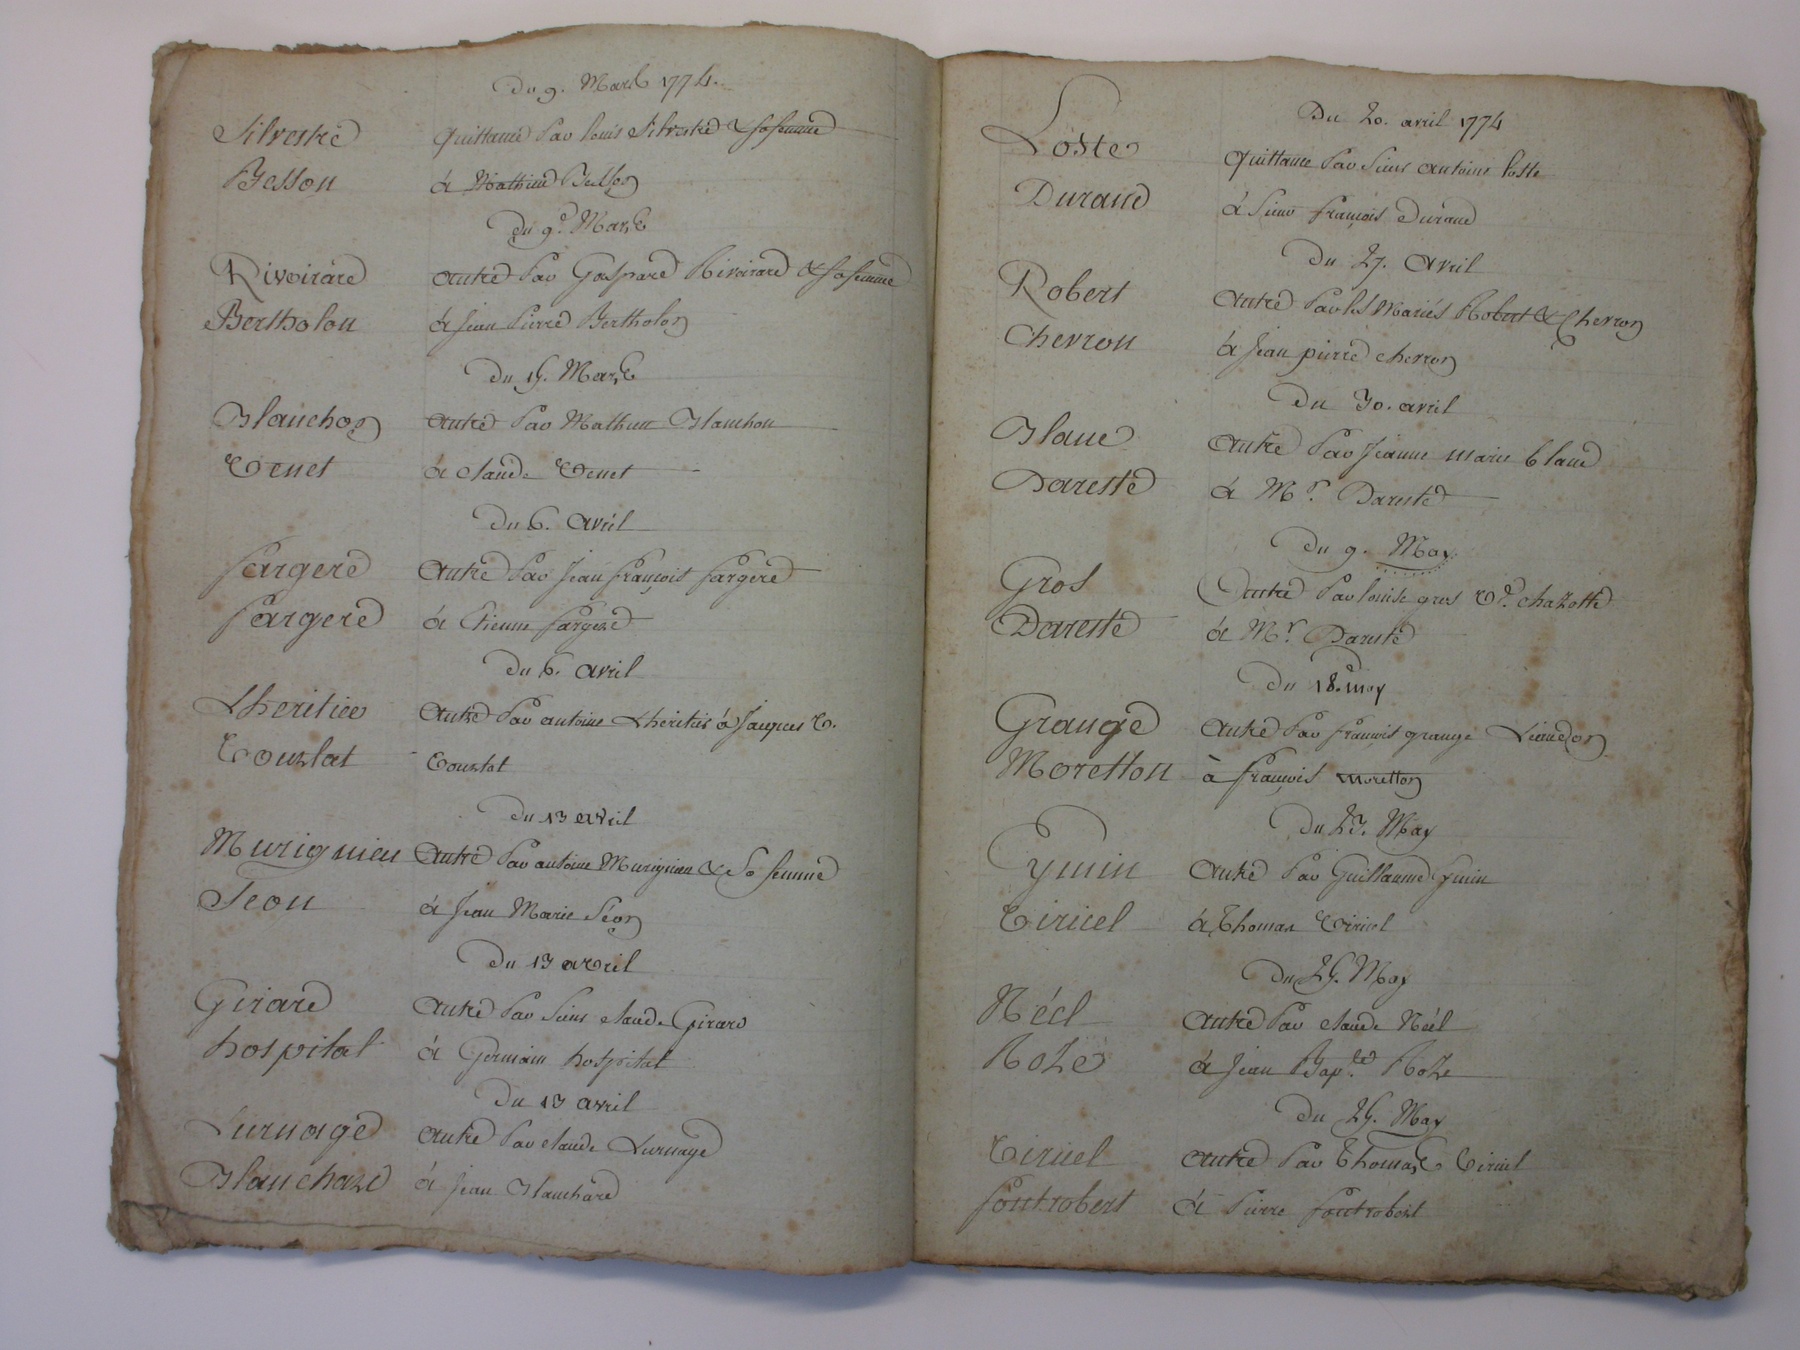 Du 9. Mars 1774.
Silvestre quittance Par louis Silvestre & sa femme
Besson à Mathieu Besson
Du 9e. Mars
Rivoirard autre Par Gaspard Rivoirard & sa femme
Bertholon à Jean Pierre Bertholon
Du 15. Mars
Blanchon autre Par Mathieu Blanchon
Venet à claude Venet
Du 6. avril
fargere autre Par Jean françois fargere
fargere à Etienne fargere
Du 6. avril
Lheritier autre Par antoine Lheritier à Jacques V.
Vourlat Vourlat
Du 13 avril
Murignieu autre Par antoine Murignieu & Sa femme
Seon à Jean Marie Séon
Du 13 avril
Girard autre Par Sieur claude Girard
hospital à Germain hospital
Du 13 avril
Lurnage autre Par claude Lurnage
Blanchard à Jean Blanchard
Du 20. avril 1774
Loste quittance Par Sieur antoine loste
Durand à Sieur françois Durand
Du 27. avril
Robert autre Par les Mariés Robert & Chevron
Chevron à Jean pierre chevron
Du 30. avril
Blanc autre Par Jeanne marie blanc
Dareste à Mr. Dareste
Du 9. May
Gros autre Par louise gros Ve. chazotte
Dareste à Mr. Dareste
Du 18. may
Grange autre Par françois grange
Moretton à françois moretton
Du 23. May
Ymin autre Par Guillaume ymin
Viricel à Thomas Viricel
Du 25. May
Néel autre Par claude Néel
Roze à Jean Bapte. Roze
Du 25. May
Viricel autre Par Thomas Viricel
fontrobert à Pierre fontrobert